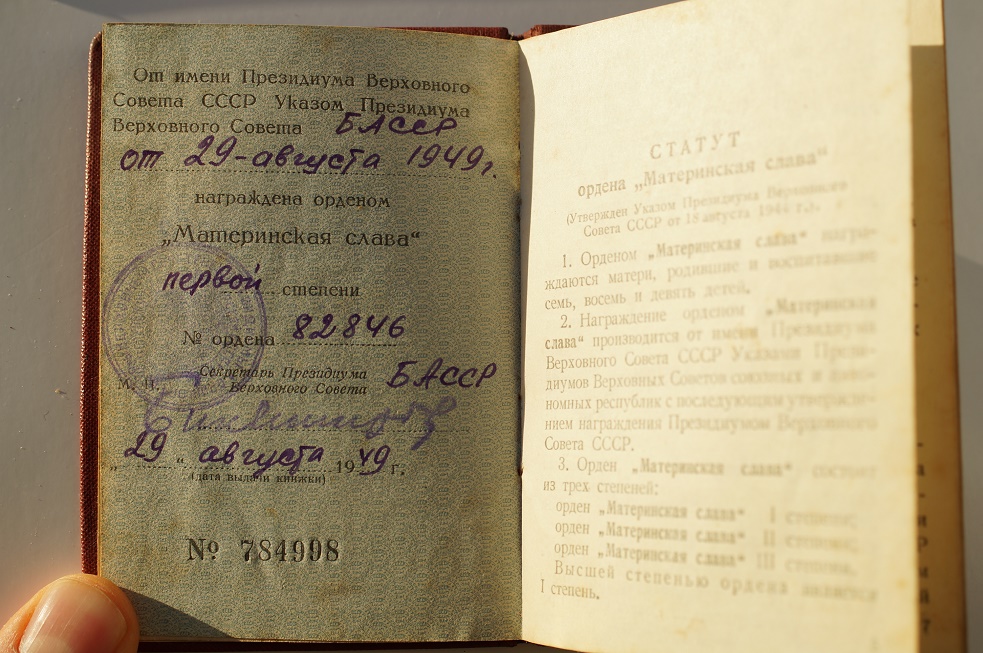 От имени Президиума Верховного
Совета СССР Указом Президиума
Верховного Совета БАССР
от 29-августа 1949г.
награждена орденом
„Материнская слава“
первой степени
№ ордена 82846
Секретарь Президиума
Верховного Совета БАССР
М. П.
„29“ августа 1949 г.
(дата выдачи книжки)
№ 784998
СТАТУТ
ордена „Материнская слава“
(Утвержден Указом Президиума Верховного
Совета СССР от 18 августа 1944 г.).
1. Орденом „Материнская слава“ награ-
ждаются матери, родившие и воспитавшие
семь, восемь и девять детей.
2. Награждение орденом „Материнская
слава“ производится от имени Президиума
Верховного Совета СССР Указами Прези-
диумов Верховных Советов союзных и авто-
номных республик с последующим утвержде-
нием награждения Президиумом Верховного
Совета СССР.
3. Орден „Материнская слава“ состоит
из трех степеней:
орден „Материнская слава“ I степени;
орден „Материнская слава“ II степени;
орден „Материнская слава“ III степени.
Высшей степенью ордена является
I степень.